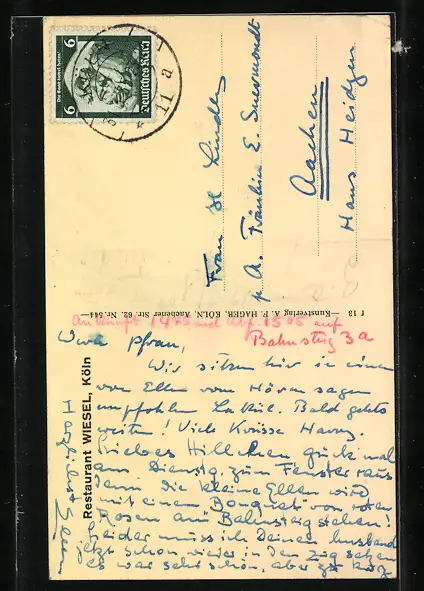 Die Saar kehrt heim!
6 6
Deutsches Reich
11 a
Frau H Linden
A. Fräulein E. Suermondt
Aachen
Haus Heidgen
f 13
—Kunstverlag A. F. HAGER, KÖLN, Aachener Str. 62. Nr. 544—
Restaurant WIESEL, Köln
Ankunft 14 und Abf. 1505 auf
Bahnsteig 3a
Wir sitzen hier in einem
von Ellen vom Hören sagen
empfohlen Lokal. Bald gehts
weiter! Viele Grüsse Harry.
Liebes Hillchen guck mal
am Dienstag zum Fenster raus
denn die kleine Ellen wird
mit einem Bouquet von roten
Rosen am Bahnsteig stehen!
Leider muss ich Deinen husband
jetzt schon wieder in den Zug setzen
es war sehr schön, aber zu kurz
Herzlichst Ellen